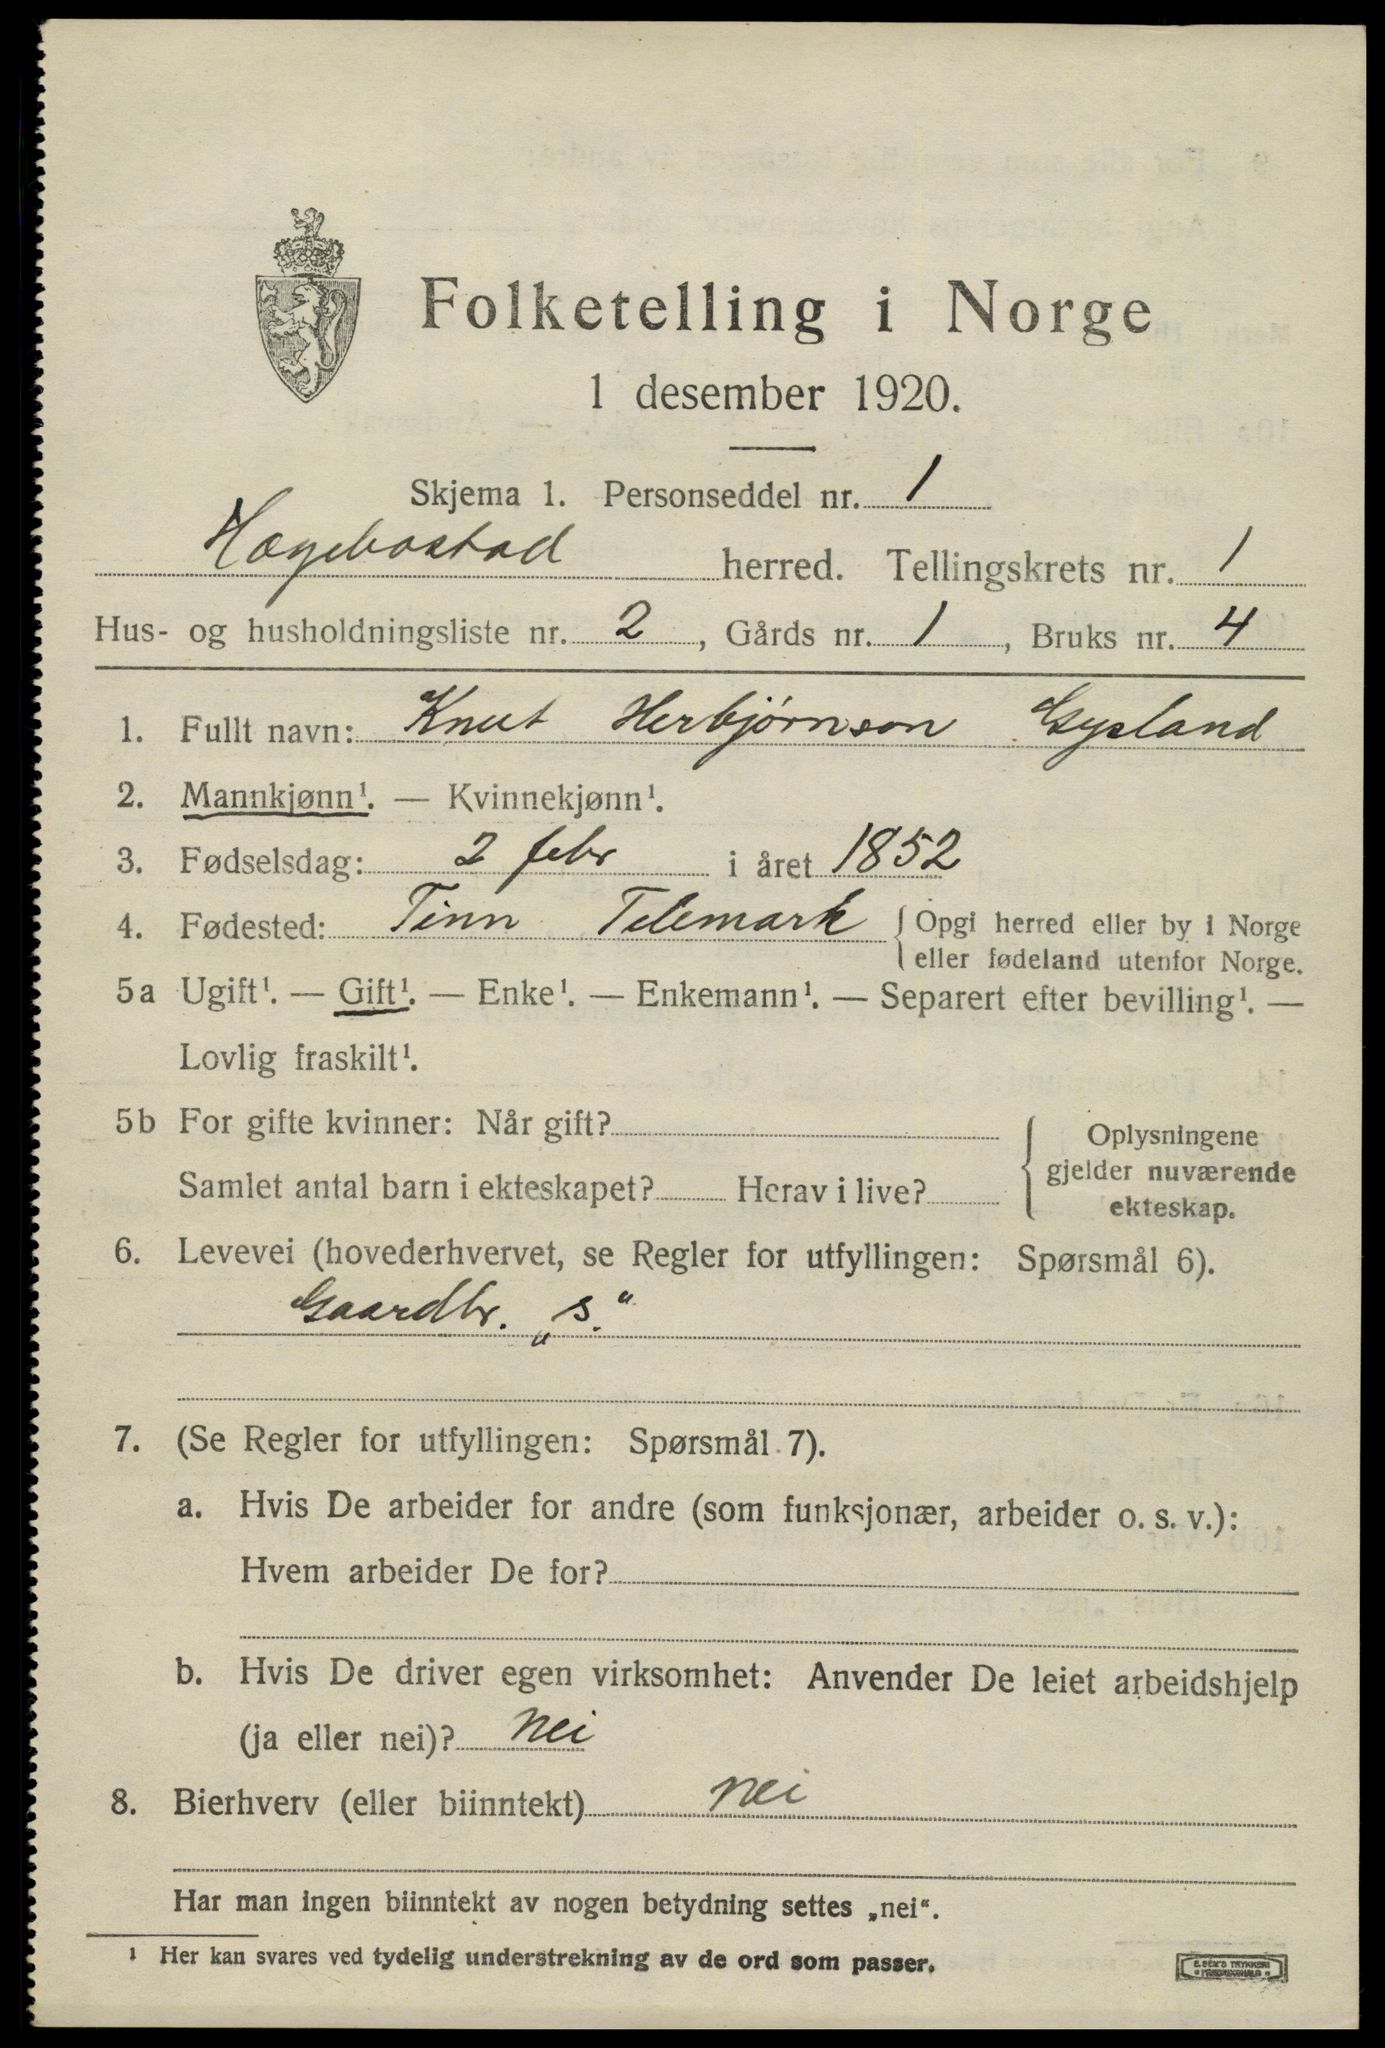 Folketelling i Norge
1 desember 1920.
Skjema 1. Personseddel nr. 1
Hægebostad herred. Tellingskrets nr. 1
Hus- og husholdningsliste nr. 2, Gårds nr. 1, Bruks nr. 4
1. Fullt navn: Knut Herbjørnson Gysland
2. Mannkjønn¹. — Kvinnekjønn¹.
3. Fødselsdag: 2 febr i året 1852
4. Fødested: Tinn Telemark { Opgi herred eller by i Norge
eller fødeland utenfor Norge.
5a Ugift¹. — Gift¹. — Enke¹. — Enkemann¹. — Separert efter bevilling¹. —
Lovlig fraskilt¹.
5b For gifte kvinner: Når gift?
Samlet antal barn i ekteskapet? Herav i live?
Oplysningene
gjelder nuværende
ekteskap.
6. Levevei (hovederhvervet, se Regler for utfyllingen: Spørsmål 6).
Gaardbr. „s.“
7. (Se Regler for utfyllingen: Spørsmål 7).
a. Hvis De arbeider for andre (som funksjonær, arbeider o. s. v.):
Hvem arbeider De for?
b. Hvis De driver egen virksomhet: Anvender De leiet arbeidshjelp
(ja eller nei)? nei
8. Bierhverv (eller biinntekt) nei
Har man ingen biinntekt av nogen betydning settes „nei“.
¹ Her kan svares ved tydelig understrekning av de ord som passer.